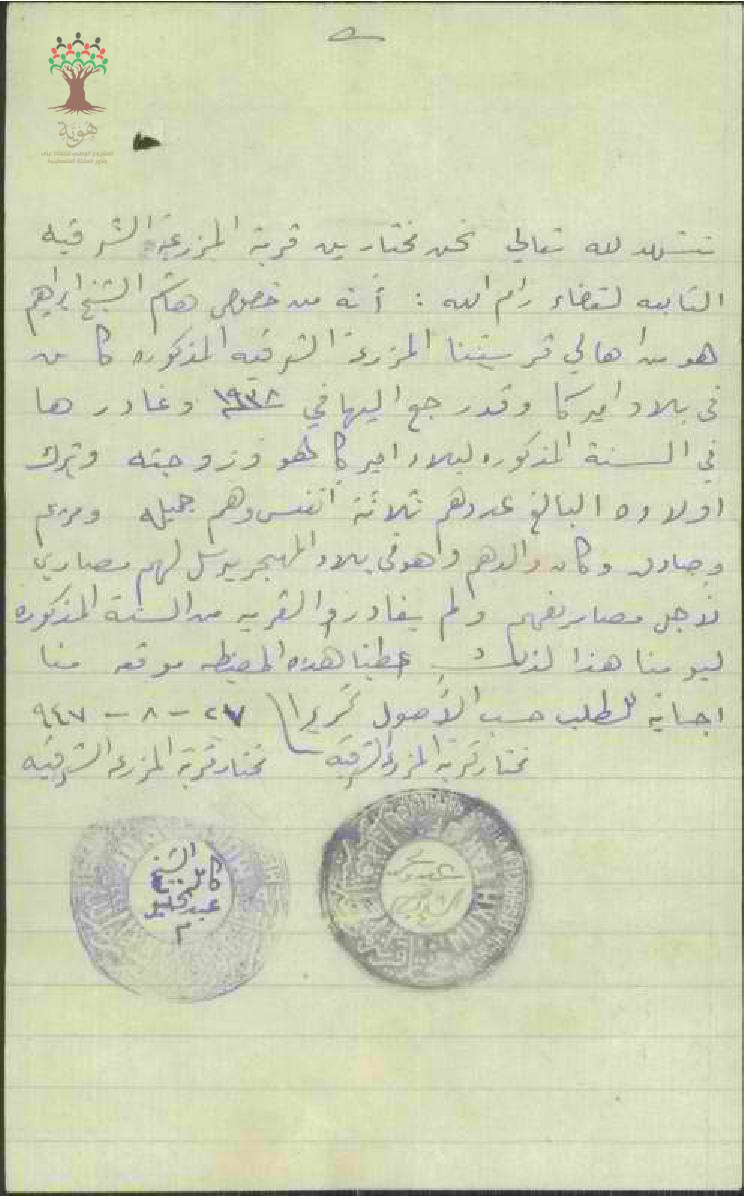 هوية
المشروع الوطني للحفاظ على
جذور العائلة الفلسطينية
نشهد لله تعالى نحن مختارين قرية المزرعة الشرقيه
التابعه لقضاء رام الله : أنه من خصوص هاشم الشيخ ابراهيم
هو من اهالي قريتنا المزرعة الشرقيه المذكوره كان
في بلاد اميركا وقد رجع اليها في ١٩٣٨ وغادرها
في السنة المذكوره لبلاد اميركا هو وزوجته وترك
اولاده البالغ عددهم ثلاثة انفس وهم جميله ومريم
وصادق وكان والدهم وهو في بلاد المهجر يرسل لهم مصاري
لأجل مصاريفهم ولم يغادرو القريه من السنة المذكورة
ليومنا هذا لذلك عطينا هذه المضبطه موقعه منا
اجابة للطلب حسب الأصول تحريرا ٢٧ - ٨ - ٩٤٧
مختار قرية المزرعة الشرقيه مختار قرية المزرعه الشرقيه
الشيخ
كامل
عبد